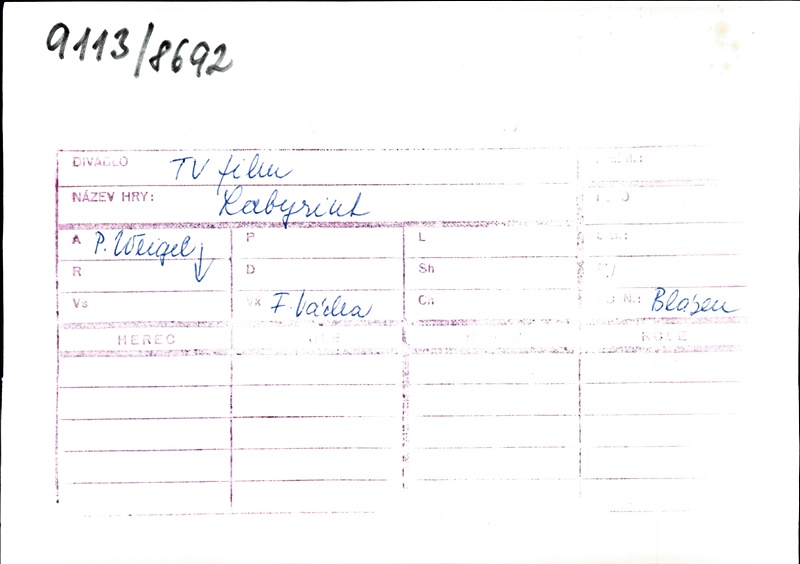 9113/8692
DIVADLO TV film
NÁZEV HRY: Labyrint
A P. Weigel P L
R D Sh
Vs Vk F. Vácha Ch N.: Blázen
HEREC ROLE